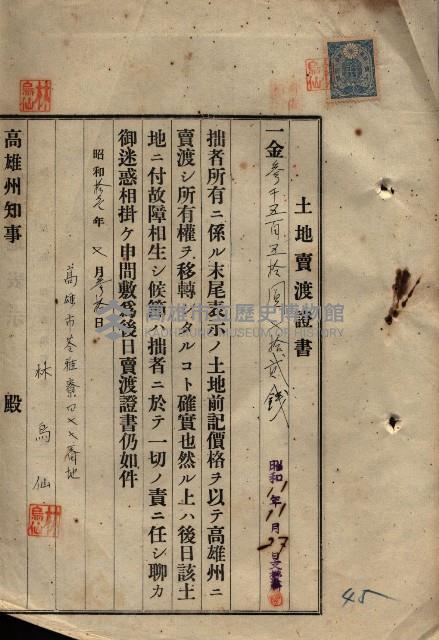 土地賣渡證書
一金參千五百五拾圓七拾貳錢
拙者所有ニ係ル末尾表示ノ土地前記價格ヲ以テ高雄州ニ
賣渡シ所有權ヲ移轉シタルコト確實也然ル上ハ後日該土
地ニ付故障相生シ候節ハ拙者ニ於テ一切ノ責ニ任シ聊カ
御迷惑相掛ケ申間敷爲後日賣渡證書仍如件
昭和拾 年 月 日
高雄市苓雅寮 番地
林烏仙
林烏仙
高雄州知事 殿
昭和11年11月27日
45
林烏仙
烏仙
高雄市立歷史博物館
KAOHSIUNG MUSEUM OF HISTORY